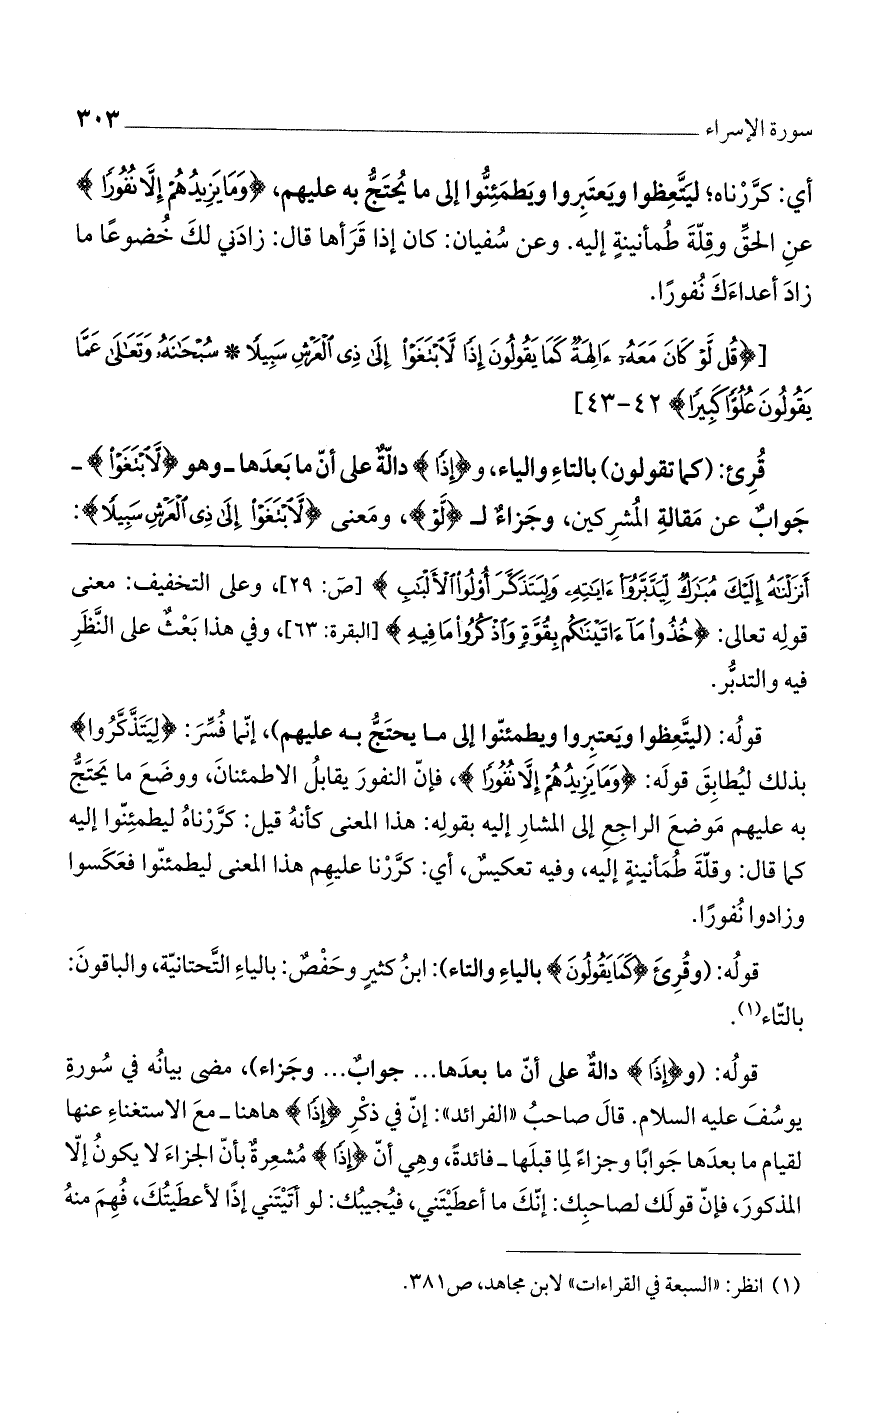 سورة الإسراء ٣٠٣
أي: كرَّرْناه؛ ليَتَّعِظوا ويَعتَبِروا ويَطمَئِنُّوا إلى ما يُحتَجُّ به عليهم، ﴿وَمَا يَزِيدُهُمْ إِلَّا نُفُورًا﴾
عنِ الحقِّ وقِلّةِ طُمأنينةٍ إليه. وعن سُفيان: كان إذا قَرَأها قال: زادَني لكَ خُضوعًا ما
زادَ أعداءَكَ نُفورًا.
[﴿قُل لَّوْ كَانَ مَعَهُۥٓ ءَالِهَةٌ كَمَا يَقُولُونَ إِذًا لَّٱبْتَغَوْا۟ إِلَىٰ ذِى ٱلْعَرْشِ سَبِيلًا * سُبْحَٰنَهُۥ وَتَعَٰلَىٰ عَمَّا
يَقُولُونَ عُلُوًّا كَبِيرًا﴾ ٤٢-٤٣]
قُرِئ: (كما تقولون) بالتاءِ والياء، و﴿إِذًا﴾ دالّةٌ على أنّ ما بَعدَها -وهو ﴿لَّٱبْتَغَوْا۟﴾-
جَوابٌ عن مَقالةِ المُشرِكين، وجَزاءٌ لـ ﴿لَّوْ﴾، ومَعنى ﴿لَّٱبْتَغَوْا۟ إِلَىٰ ذِى ٱلْعَرْشِ سَبِيلًا﴾:
أَنزَلْنَٰهُ إِلَيْكَ مُبَٰرَكٌ لِّيَدَّبَّرُوٓا۟ ءَايَٰتِهِۦ وَلِيَتَذَكَّرَ أُو۟لُوا۟ ٱلْأَلْبَٰبِ﴾ [صَ: ٢٩]، وعلى التخفيف: معنى
قولِه تعالى: ﴿خُذُوا۟ مَآ ءَاتَيْنَٰكُم بِقُوَّةٍ وَٱذْكُرُوا۟ مَا فِيهِ﴾ [البقرة: ٦٣]، وفي هذا بَعْثٌ على النَّظَرِ
فيه والتدبُّر.
قولُه: (ليتَّعِظوا ويَعتبِروا ويطمئنّوا إلى ما يحتجُّ به عليهم)، إنّما فُسِّرَ: ﴿لِيَتَذَّكَّرُوا﴾
بذلك ليُطابِقَ قولَه: ﴿وَمَا يَزِيدُهُمْ إِلَّا نُفُورًا﴾، فإنّ النفورَ يقابلُ الاطمئنانَ، ووضَعَ ما يَحتَجُّ
به عليهم مَوضعَ الراجِعِ إلى المشارِ إليه بقولِه: هذا المعنى كأنهُ قيل: كرَّرْناهُ ليطمئِنّوا إليه
كما قال: وقلّةَ طُمَأنينةٍ إليه، وفيه تعكيسٌ، أي: كرَّرْنا عليهِم هذا المعنى ليطمئنّوا فعَكَسوا
وزادوا نُفورًا.
قولُه: (وقُرِئَ ﴿كَمَا يَقُولُونَ﴾ بالياءِ والتاء): ابنُ كثيرٍ وحَفْصٌ: بالياءِ التَّحتانيّة، والباقونَ:
بالتّاء(١).
قولُه: (و﴿إِذًا﴾ دالةٌ على أنّ ما بعدَها... جوابٌ... وجَزاء)، مضى بيانُه في سُورةِ
يوسُفَ عليه السلام. قالَ صاحبُ «الفرائد»: إنّ في ذكْرِ ﴿إِذًا﴾ هاهنا - معَ الاستغناءِ عنها
لقيام ما بعدَها جَوابًا وجزاءً لِما قبلَها - فائدةً، وهِي أنّ ﴿إِذًا﴾ مُشعِرةٌ بأنّ الجزاءَ لا يكونُ إلّا
المذكورَ، فإنّ قولَك لصاحبِك: إنّكَ ما أعطَيْتَني، فيُجيبُك: لو أتَيْتَني إذًا لأعطَيتُكَ، فُهِمَ منهُ
(١) انظر: «السبعة في القراءات» لابن مجاهد، ص٣٨١.